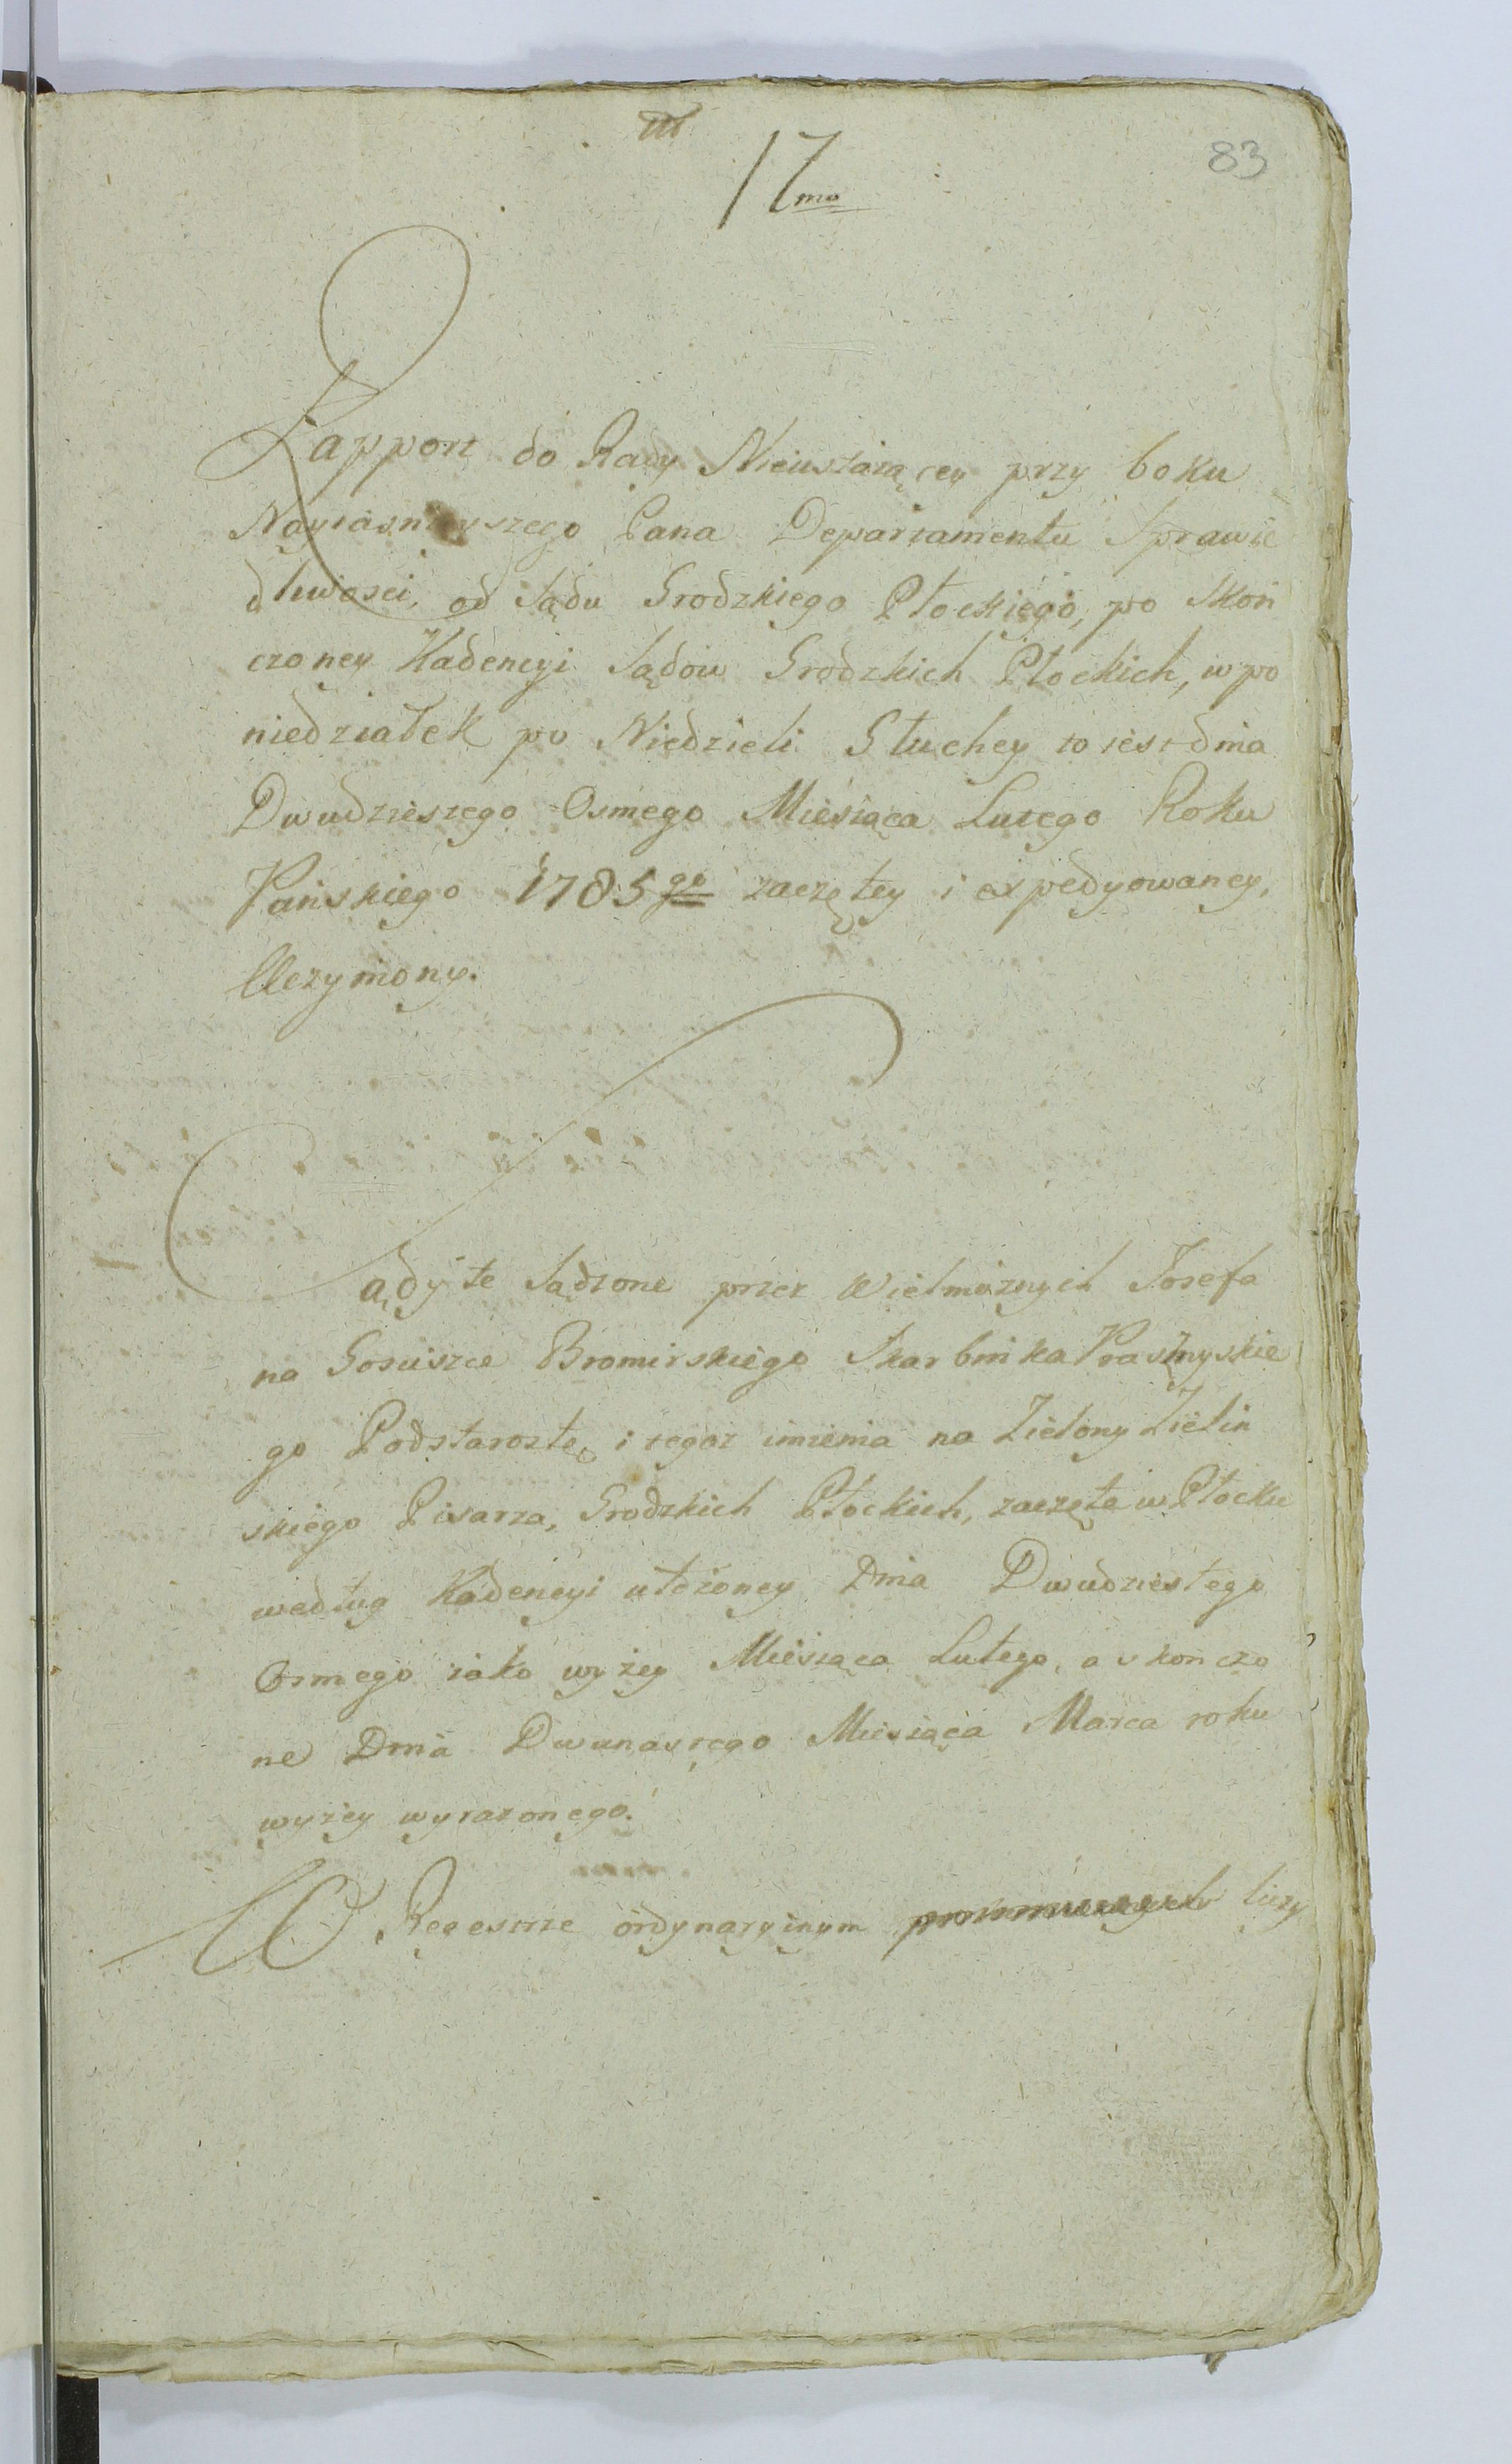 83
17mo
Rapport do Rady Nieustaiącey przy boku
Nayiaśnieyszego Pana Departamentu Sprawie
dliwości, od Sądu Grodzkiego Płockiego, po skoń
czoney Kadencyi Sądow Grodzkich Płockich, w po
niedziałek po Niedzieli Głuchey to iest dnia
Dwudziestego Osmego Miesiąca Lutego Roku
Pańskiego 1785go zaczętey i expedyowaney,
Uczyniony.
Sądy te Sądzone przez Wielmożnych Józefa
na Gościszce Bromirskiego Skarbnika Prasnyskie
go Podstarostę, i tegoż imienia na Zielony Zieliń
skiego Pisarza, Grodzkich Płockich, zaczęte w Płocku
według Kadencyi ułożoney Dnia Dwudziestego
Osmego iako wyżey Miesiąca Lutego, a skończo
ne Dnia Dwunastego Miesiąca Marca roku
wyżey wyrażonego.
W Regestrze ordynaryinym liczy